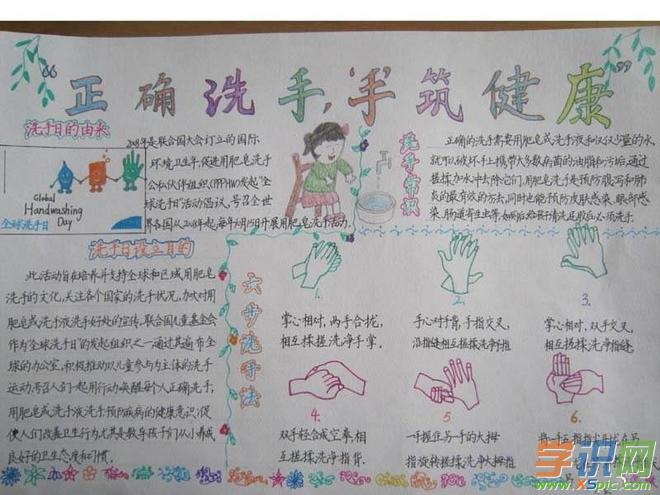 “正确洗手,‘手’筑健康”
洗手日的由来
2008年是联合国大会订立的国际
环境卫生年,促进用肥皂洗手
公私伙伴组织(PPPHW)发起“全
球洗手日”活动倡议,号召全世
界各国从2008起,每年10月15日开展用肥皂洗手活动。
Global
Handwashing
Day
全球洗手日
洗手常识
正确的洗手需要用肥皂或洗手液和仅仅少量的水,
就可以破坏手上携带大多数病菌的油脂和污垢,通过
搓揉加水冲去除它们。用肥皂洗手是预防腹泻和肺
炎的最有效的方法,同时也能预防皮肤感染、眼部感
染、肠道寄生虫等
洗手日设立目的
此活动旨在培养并支持全球和区域用肥皂
洗手的文化,关注各个国家的洗手状况,加大对用
肥皂或洗手液洗手好处的宣传。联合国儿童基金会
作为“全球洗手日”的发起组织之一通过其遍布全
球的办公室,积极推动以儿童参与为主体的洗手
运动,号召人们一起用行动唤醒每个人正确洗手,
用肥皂或洗手液洗手预防疾病的健康意识;促
使人们改善卫生行为尤其是教导孩子们从小养成
良好的卫生态度和习惯。
六步洗手法
1.
掌心相对,两手合拢,
相互揉搓洗净手掌。
2.
手心对手背,手指交叉,
沿指缝相互搓揉洗净指
3.
掌心相对,双手交叉,
相互搓揉洗净指缝.
4.
双手轻合成空拳,相
互搓揉洗净指背.
5
一手握住另一手的大拇
指旋转搓揉洗净大拇指
6.
将一手五指指尖并拢在另
学识网
www.XSpic.com